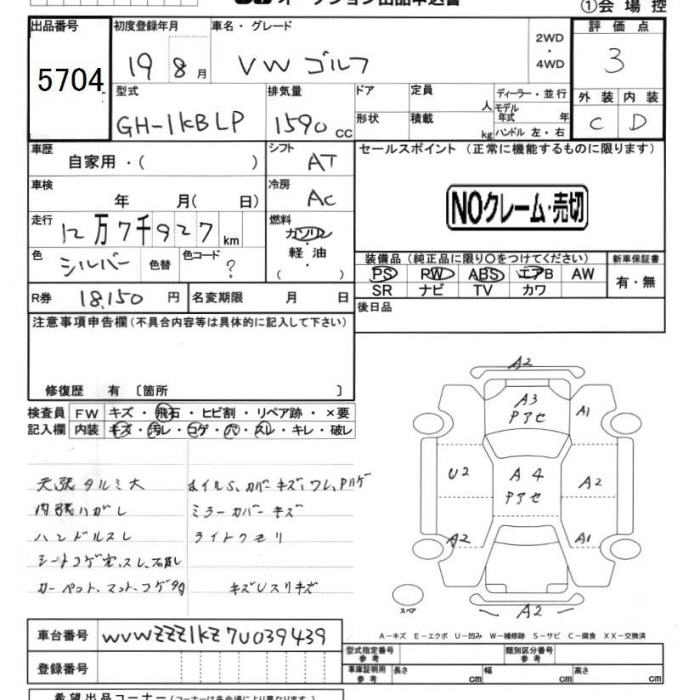 ①会場控
出品番号 初度登録年月 車名・グレード 2WD ・ 4WD 評価点
5704 19 8月 VW ゴルフ 3
型式 排気量 ドア 定員 人 ディーラー・並行 外装 内装
GH-1KBLP 1590 cc 形状 積載 kg モデル年式 年 ハンドル 左・右 C D
車歴 自家用・( ) シフト AT セールスポイント (正常に機能するものに限ります)
車検 年 月( 日) 冷房 AC
NOクレーム・売切
走行 12万7千927km 燃料 ガソリン・軽油 ( )
色 シルバー 色替 色コード ?
装備品 (純正品に限り○をつけてください) 新車保証書
PS RW ABS エアB AW 有・無
SR ナビ TV カワ
R券 18,150 円 名変期限 月 日 後日品
注意事項申告欄 (不具合内容等は具体的に記入して下さい)
修復歴 有 〔箇所 〕
検査員 FW キズ・飛石・ヒビ割・リペア跡・×要
記入欄 内装 キズ・汚レ・コゲ・穴・スレ・キレ・破レ
天張タルミ大 ホイルS、カバーキズ、ワレ、Pハゲ
内張ハガレ ミラーカバーキズ
ハンドルスレ ライトクモリ
シートコゲ穴、スレ、
カーペット、マット、コゲ キズUスリキズ
A2
A3 Pアセ A1
U2 A4 Pアセ A2
A2 A1
スペア A2
A-キズ E-エクボ U-凹み W-補修跡 S-サビ C-腐食 XX-交換済
車台番号 WVWZZZ1KZ7U039439
型式指定番号 参考 類別区分番号 参考
登録番号 車庫証明用 参考 長さ cm 幅 cm 高さ cm